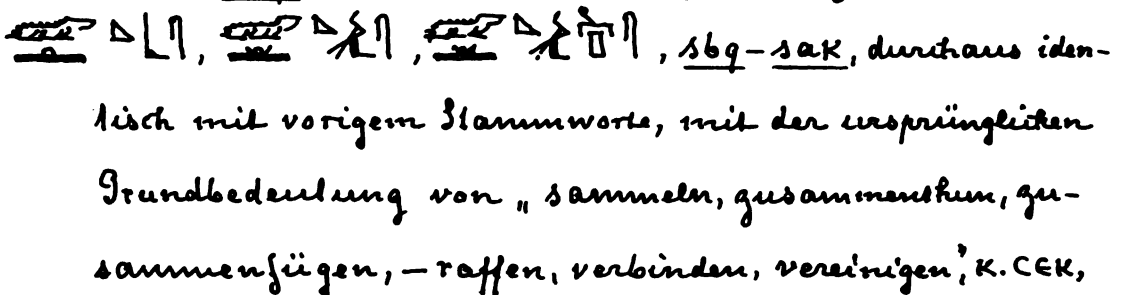 , , , sbq-sak, durchaus iden-
tisch mit vorigem Stammworte, mit der ursprünglichen
Grundbedeutung von „sammeln, zusammenthun, zu-
sammenfügen, – raffen, verbinden, vereinigen”, K. CEK,